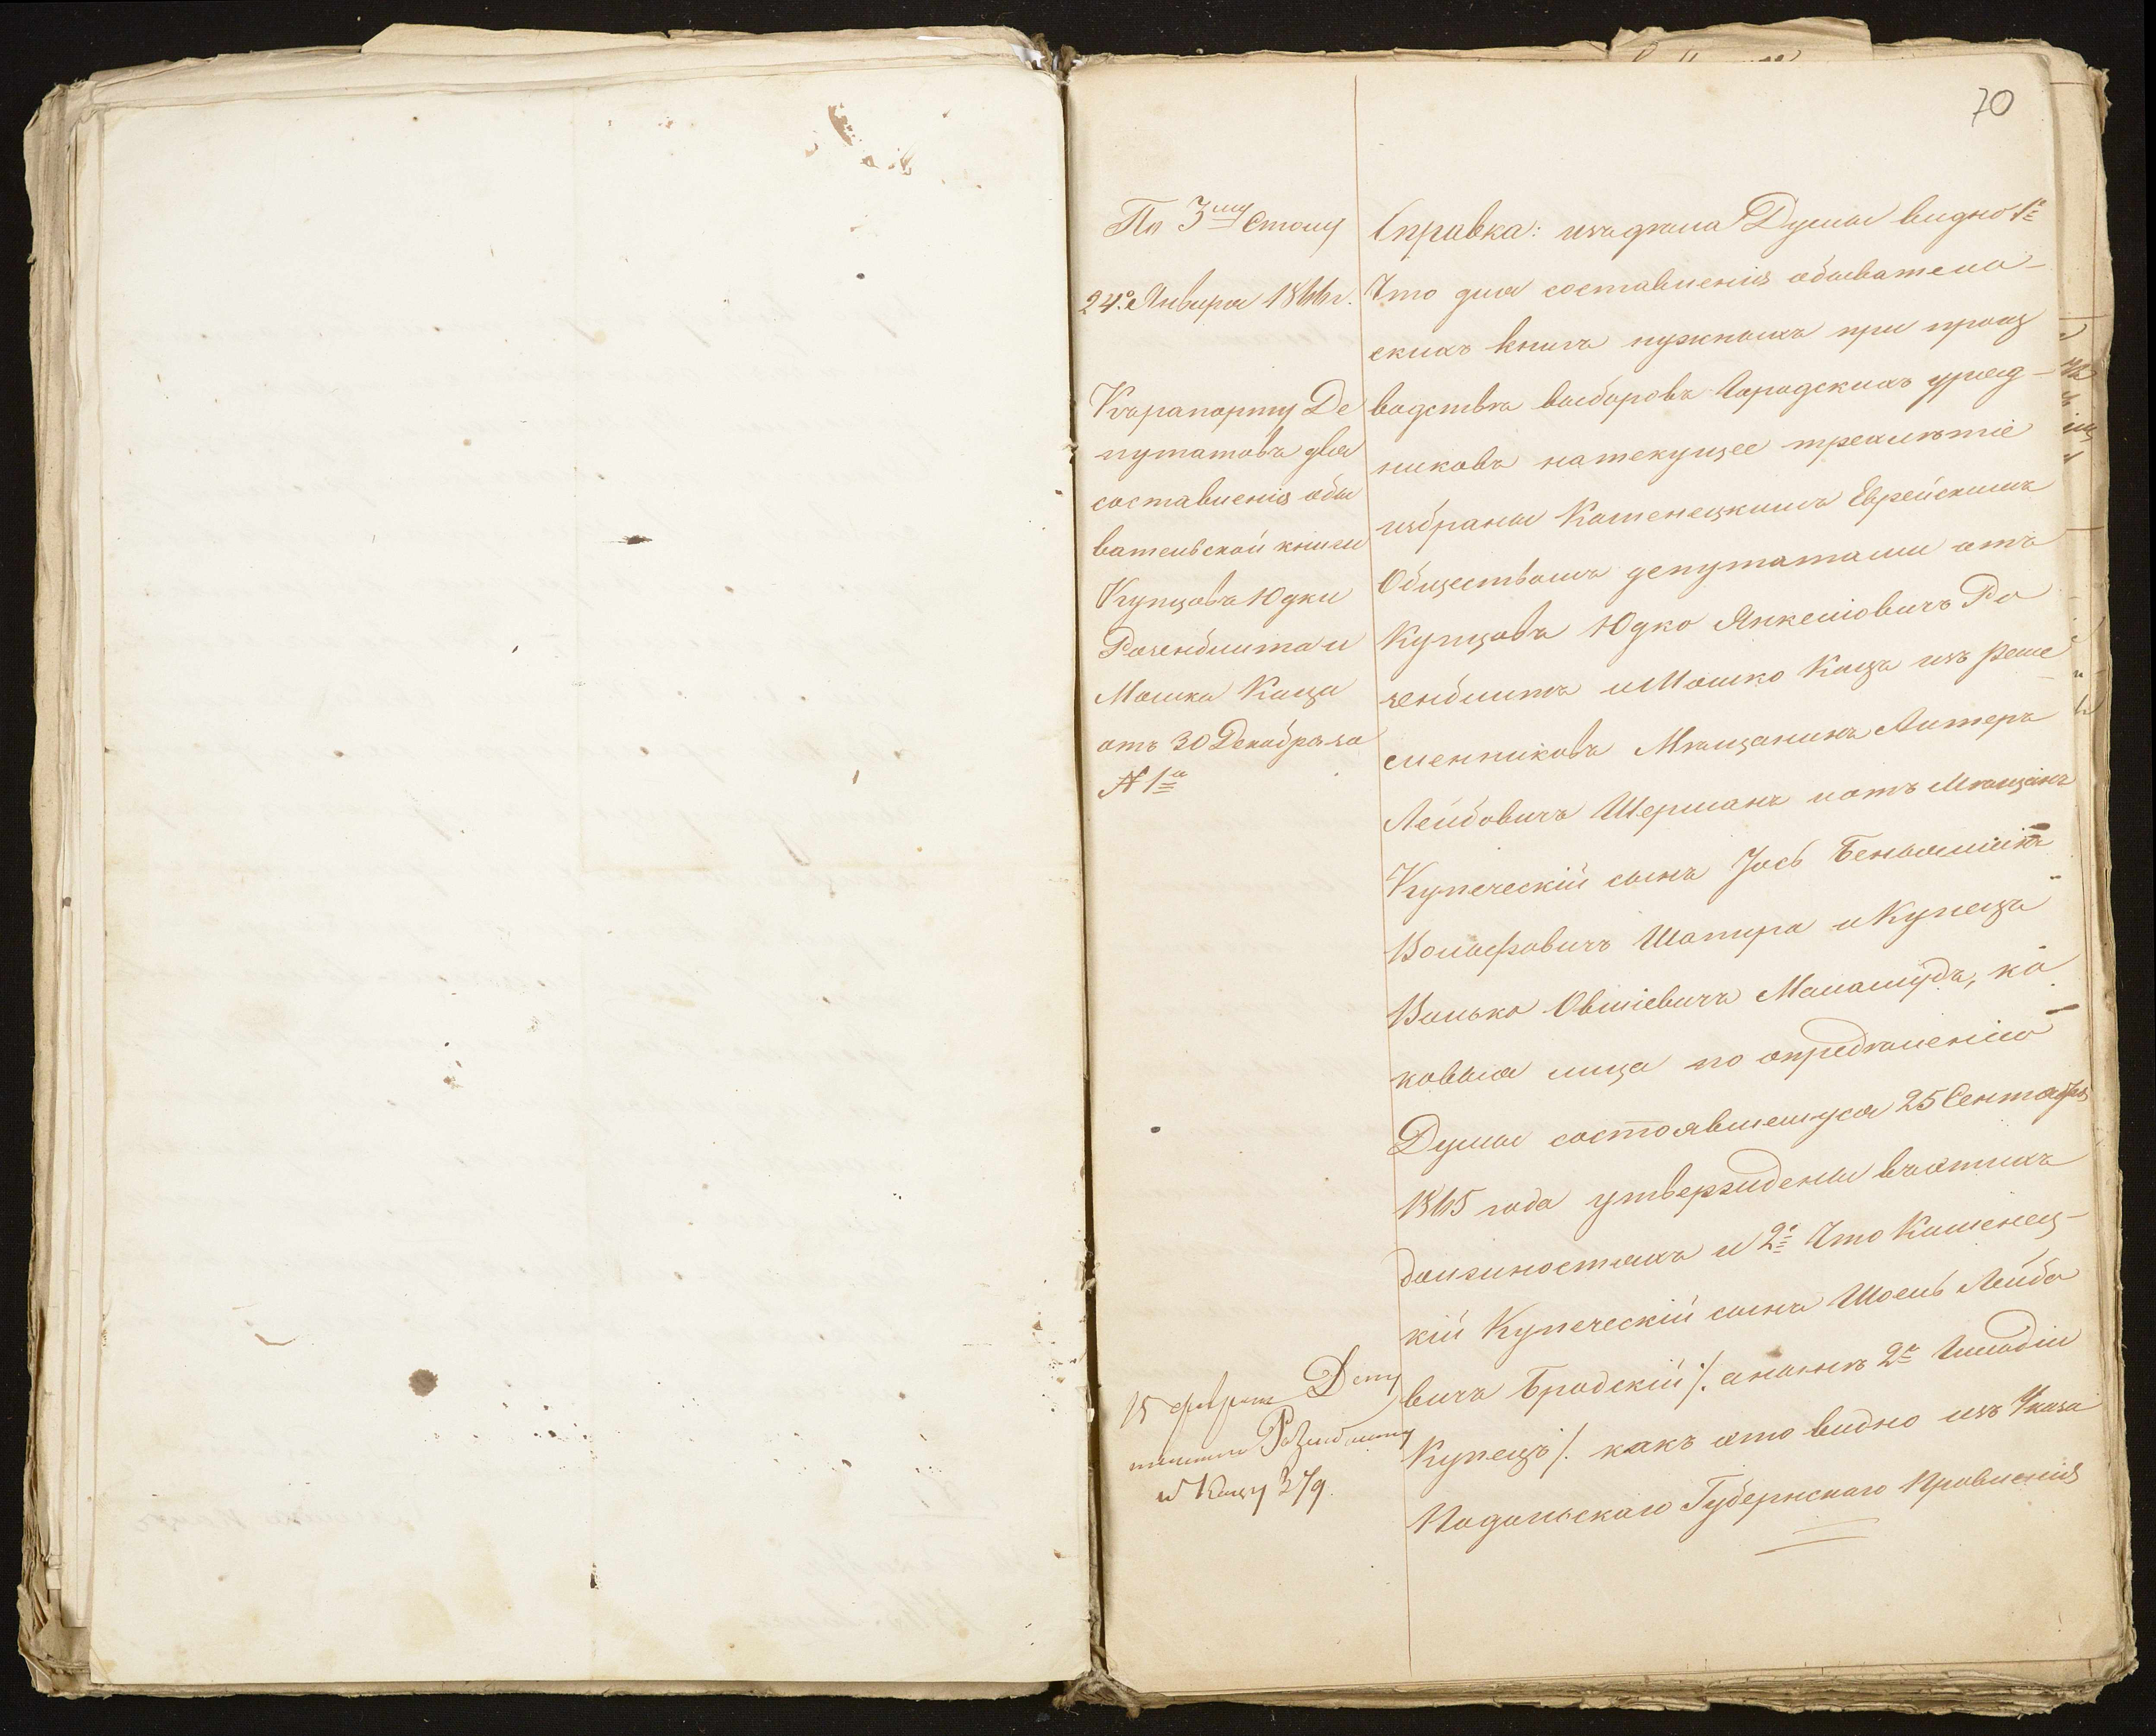 70
По 3му Столу
24го Января 1866 г.
Къ рапорту Де
путатовъ для
составленія обы
вательской книги
Купцовъ Юдки
Розенблита и
Мошка Каца
отъ 30 Декабря за
№ 1м
15 февраля Деп
Розенблиту
и Кацу 379.
Справка: изъ дѣла Думы видно 1е
Что для составленія обыватель-
скихъ книгъ нужныхъ при произ
водствѣ выборовъ Городскихъ уряд-
никовъ на текущее трехлѣтіе
избраны Каменецкимъ Еврейскимъ
Обществомъ депутатами отъ
Купцовъ Юдко Янкеліовичъ Ро
зенблитъ и Мошко Кацъ изъ реме
сленниковъ Мѣщанинъ Алтеръ
Лейбовичъ Шерманъ и отъ Мѣщанъ
Купеческій сынъ Іось Беньяминъ
Вольфовичъ Шапира и Купецъ
Волько Овшіевичъ Маламудъ, ка
ковыя лица по опредѣленію
Думы состоявшемуся 25 Сентября
1865 года утверждены въ этихъ
должностяхъ и 2е Что Каменец-
кій Купеческій сынъ Шоель Лейбо
вичъ Бродскій /. а нынѣ 2й Гильдіи
Купецъ /. какъ это видно изъ Указа
Подольскаго Губернскаго Правленія